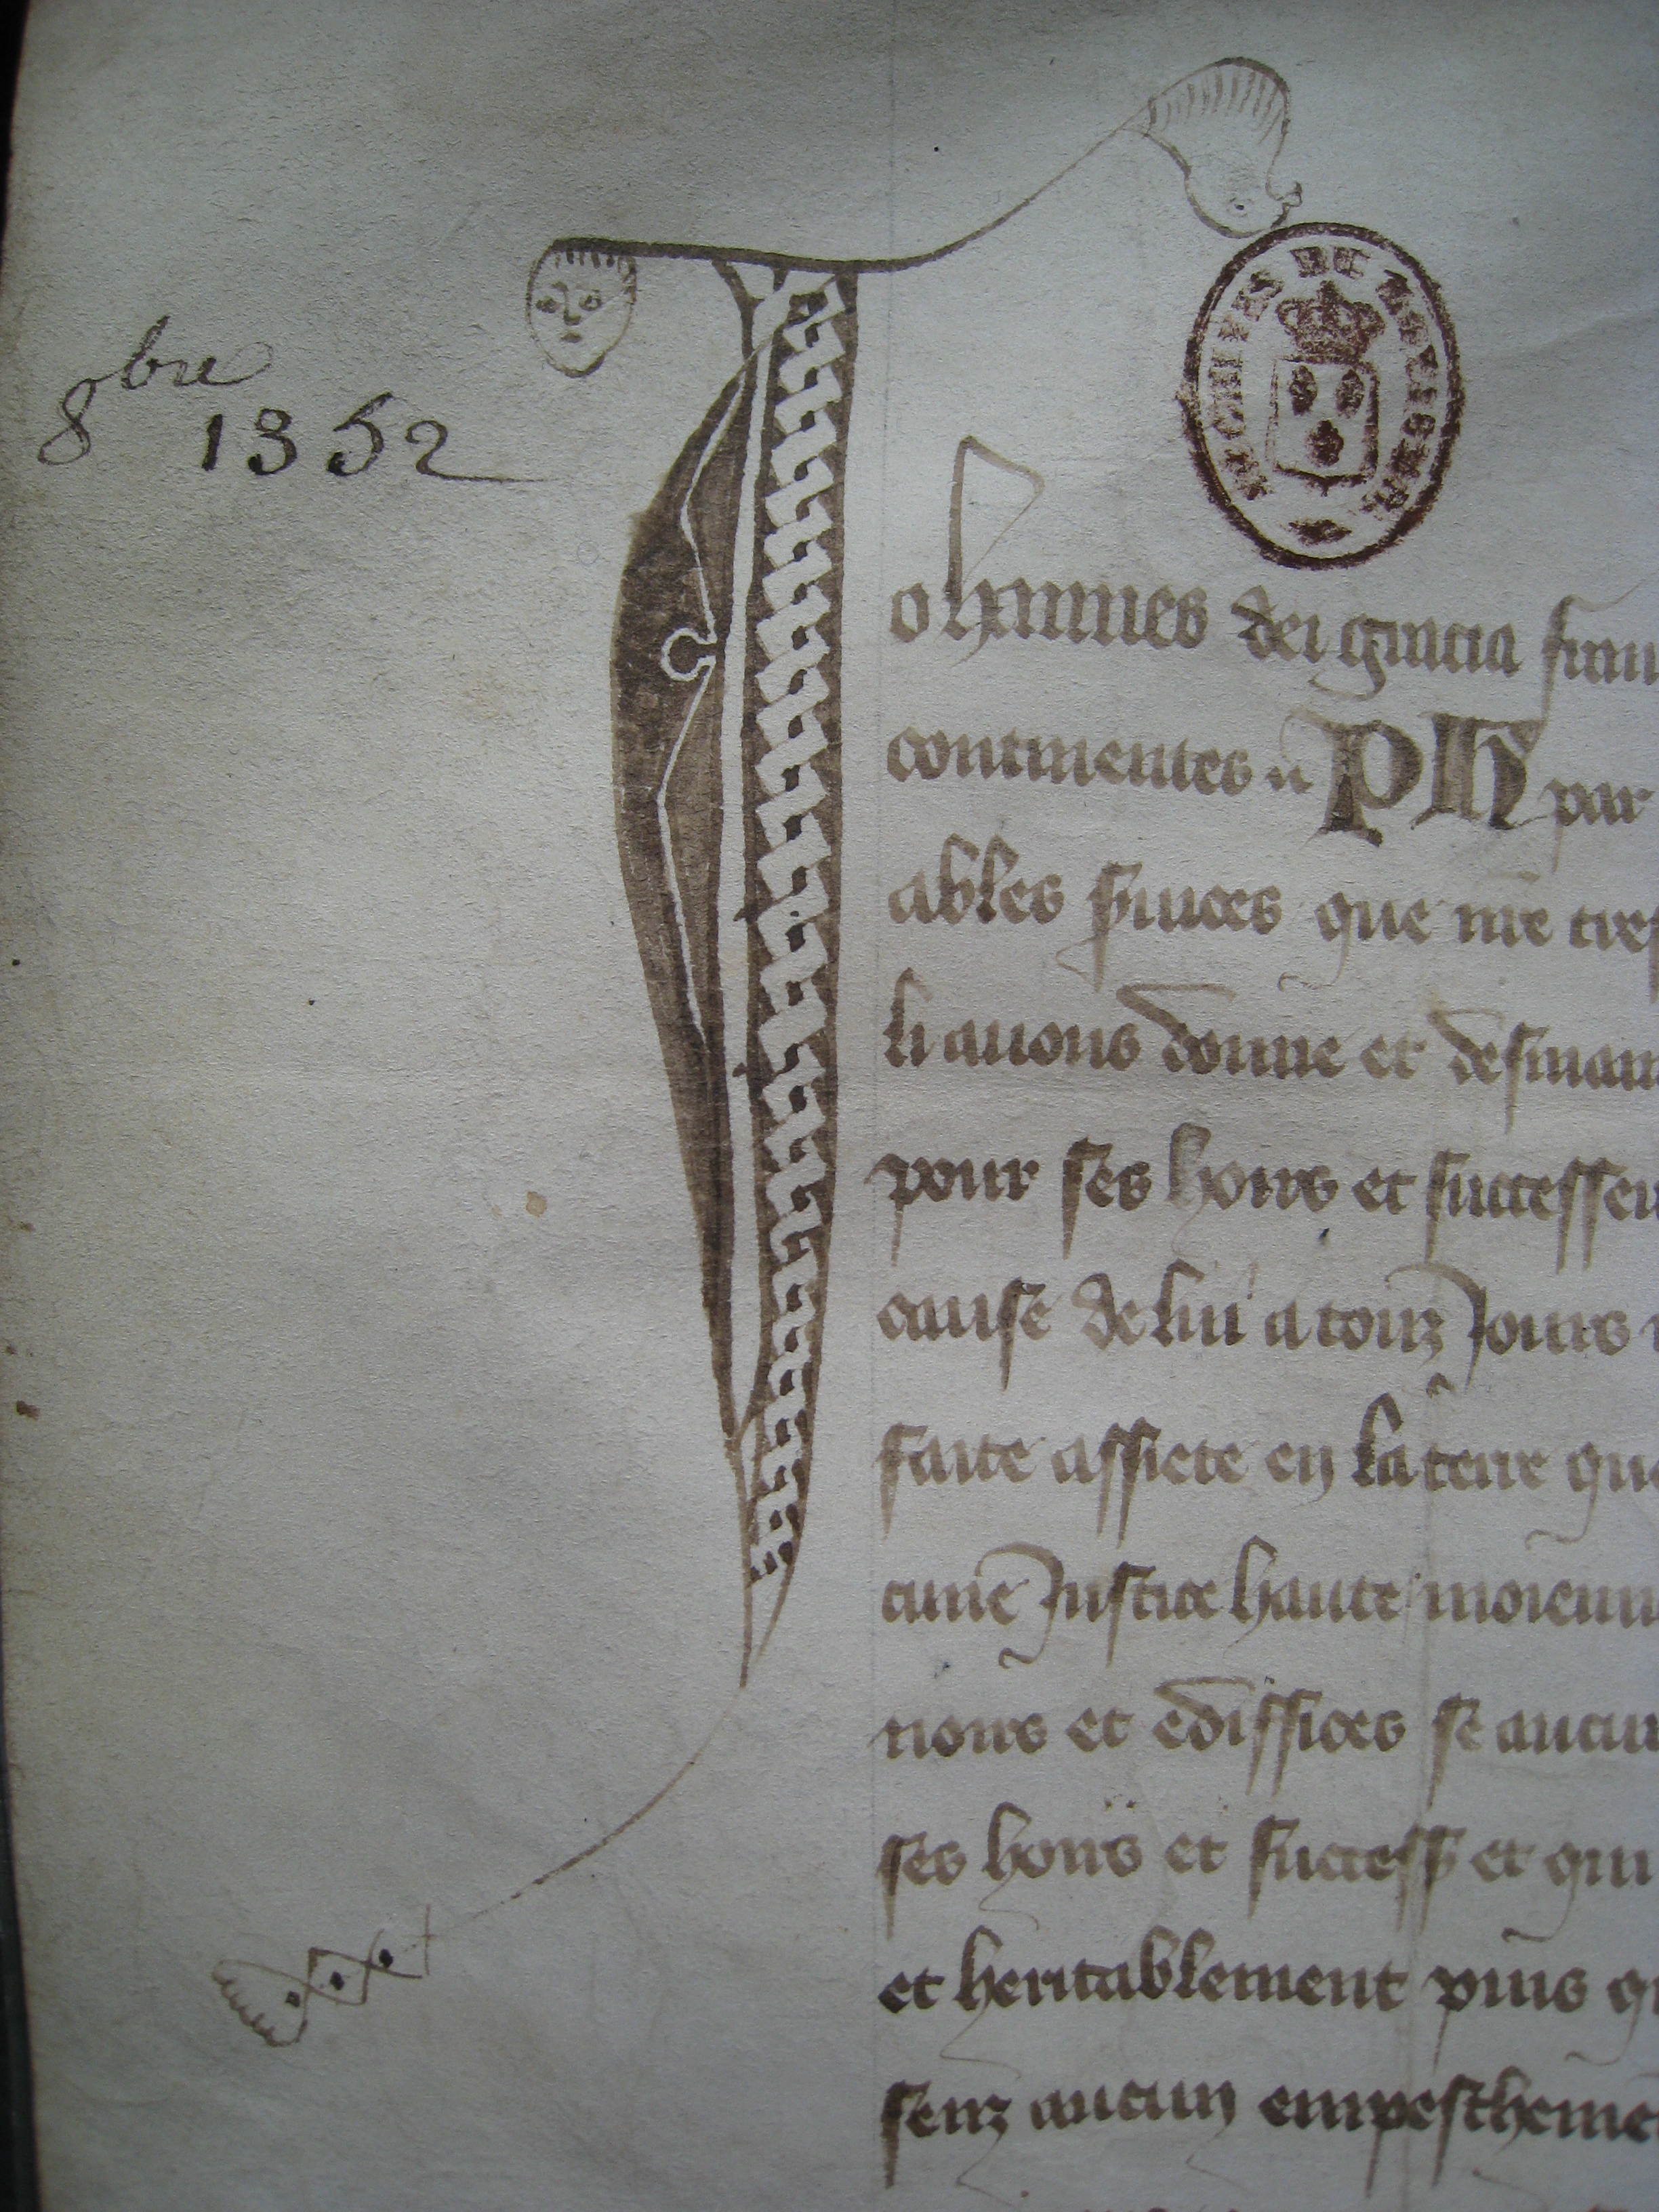 8bre
1352
ARCHIVES DU MORBIHAN
Johannes dei gracia fran
continentes Ph par
ables que tres
li avons donne et
pour ses hoirs et successeu
cause de lui a touz Jours
faite assiete en la terre que
Justice haute moienn
et ediffices se aucu
ses hoirs et success et qui
et heritablement puis q
senz aucun empeschemē